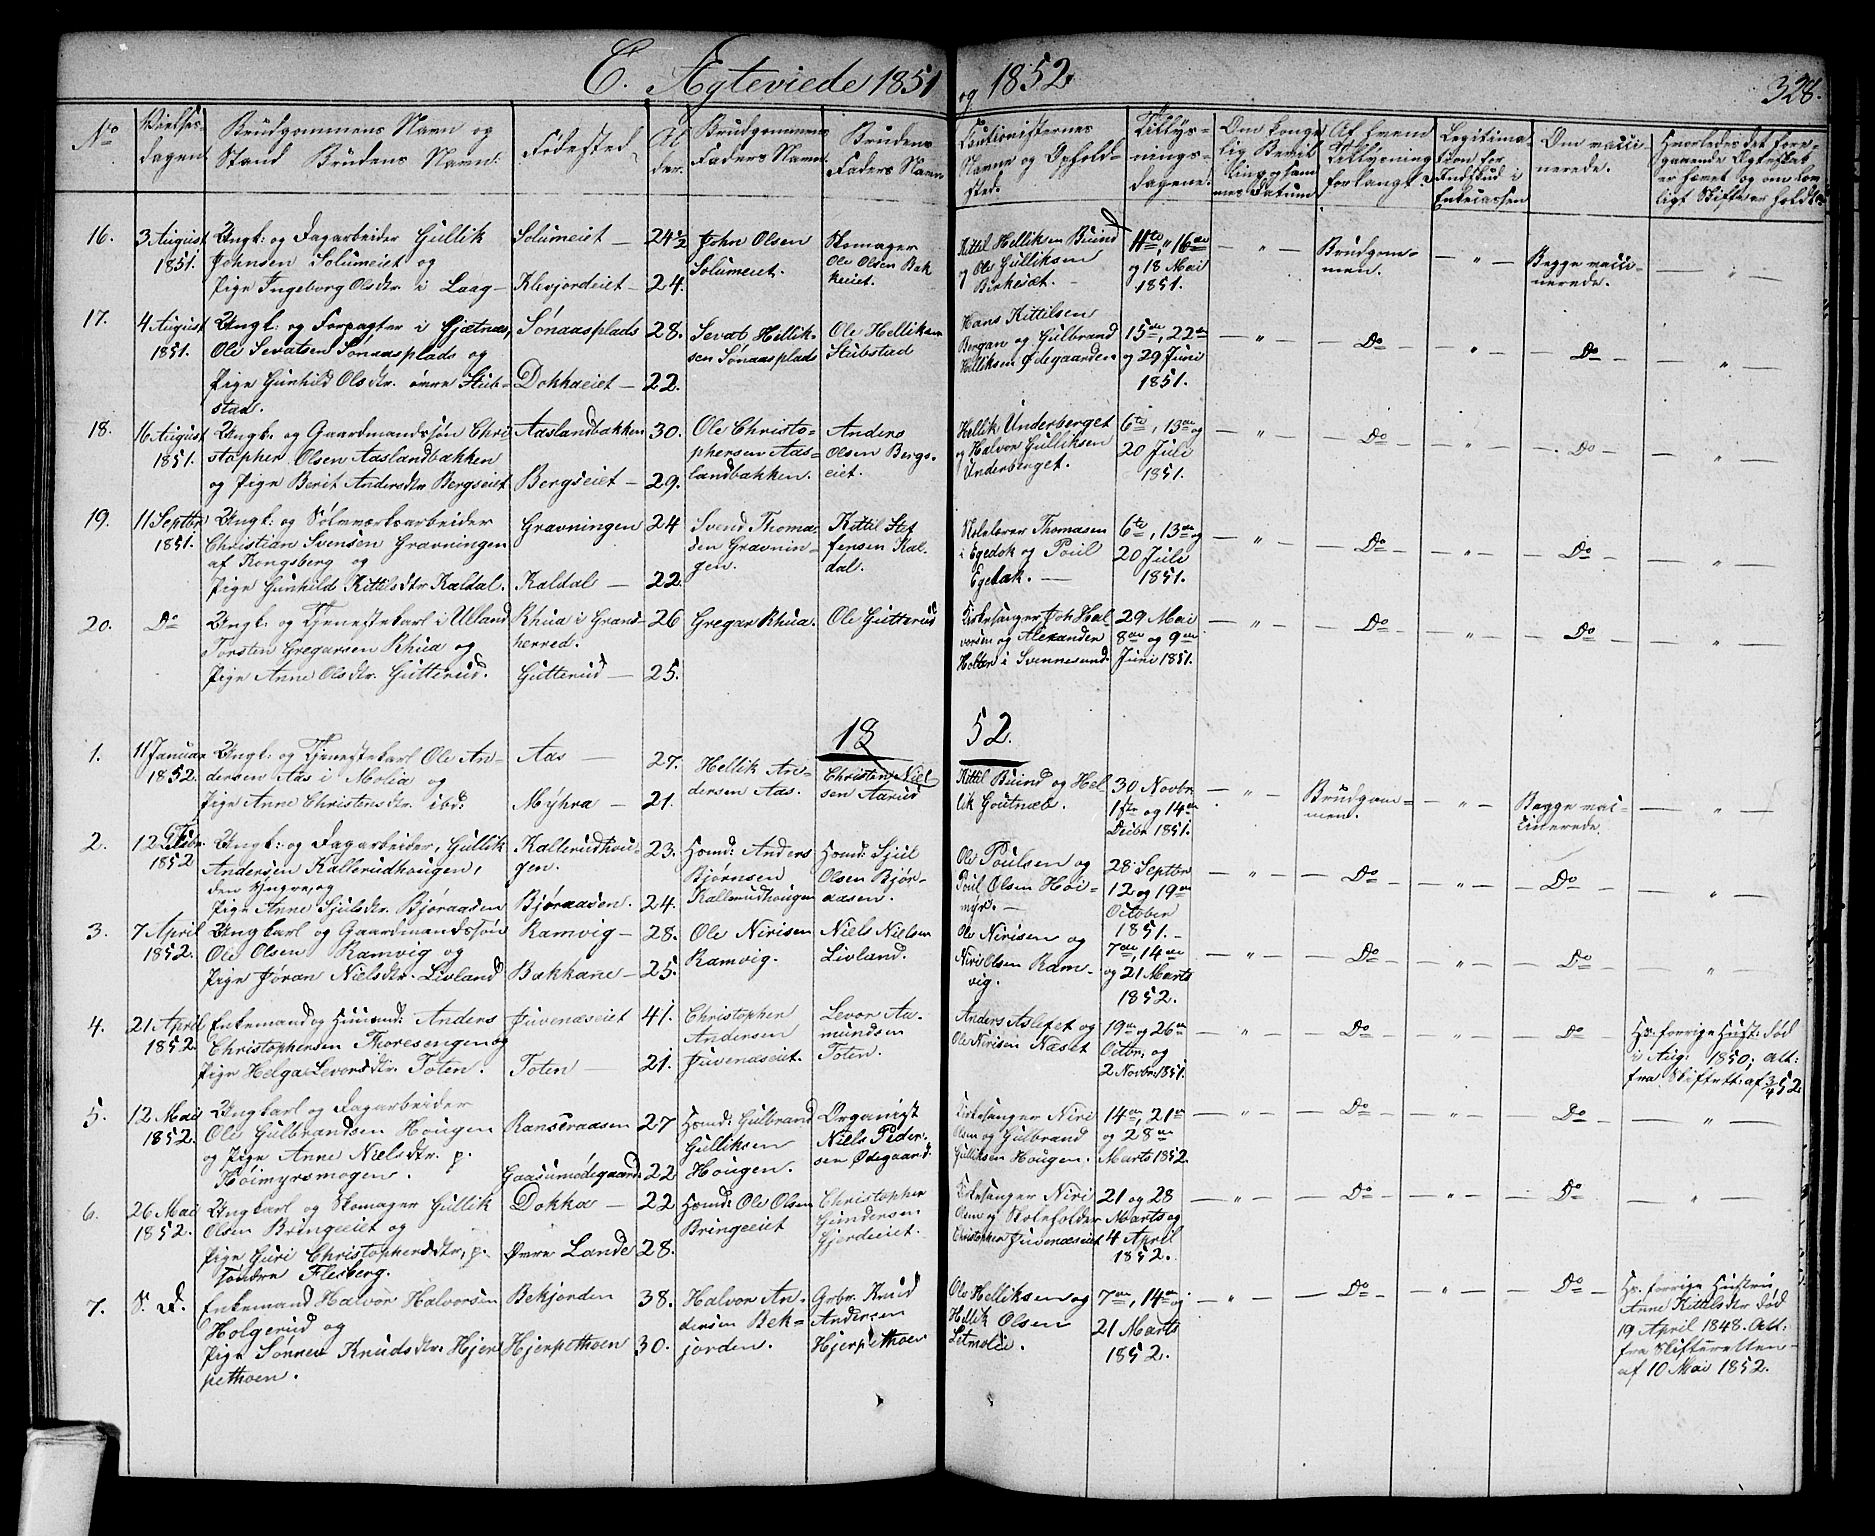 C. Ægteviede 1851 og 1852.
328.
No
Vielses-
dagen
Brudgommens Navn og
Stand Brudens Navn.
Fødested
Al
der.
Brudgommens
Faders Navn.
Brudens
Faders Navn
Cautionisternes
Navne og Ophold-
sted.
Tillys-
nings-
dagene.
Om konge
lig Bevil
ling og sam
mes Datum
Af hvem
Tillysning
forlangt.
Legitima-
tion for
Indskud i
Enkecassen
Om vacci-
nerede.
Hvorledes det fore-
gaaende Ægteskab
er hævet og om lov
ligt Skifte er holdt
16.
3 August
1851.
Ungk: og Dagarbeider Gullik
Johnsen Solumeiet og
Pige Ingeborg Olsdtr. i Laag
Solumeiet —
Klevjordeiet —
24½
24.
John Olsen
Solumeiet.
Skomager
Ole Olsen Bak
keiet.
Kittil Helliksen Buind
og Ole Gulliksen
Birkesæt.
11te, 16de
og 18 Mai
1851.
— " —
Brudgom-
men.
— " —
Begge vacci-
nerede.
— " —
17.
4 August
1851.
Ungk: og Forpagter i Gjætnæs,
Ole Sevatsen Sønaasplads og
Pige Gunhild Olsdtr. øvre Stub-
stad.
Sønaasplads
Dokkaeiet —
28.
22.
Sevat Hellik-
sen Sønaasplads
Ole Helliksen
Stubstad
Hans Kittilsen
Bergan og Gulbrand
Helliksen Ødegaarden
15de, 22de
og 29 Juni
1851.
— " —
— Do —
— " —
— Do —
— " —
18.
16 August
1851.
Ungk: og Gaardmandssøn Chri
stopher Olsen Aaslandbakken
og Pige Berit Andersdtr Bergseiet
Aaslandbakken
Bergseiet —
30.
29.
Ole Christo-
phersen Aas-
landbakken.
Anders
Olsen Bergs-
eiet
Hellik Underberget
og Halvor Gulliksen
Underberget.
6te, 13de og
20 Juli
1851.
— " —
— Do —
— " —
— Do —
— " —
19.
11 Septbr
1851.
Ungk: og Sølvværksarbeider
Christian Svensen Gravningen
af Kongsberg og
Pige Gunhild Kittilsdtr Kaldal.
Gravningen
Kaldal —
24
22.
Svend Thoma-
sen Gravnin-
gen.
Kittil Stef
fensen Kal-
dal.
Skolelærer Thomasen
i Egedok og Poul
Egedak. —
6te, 13de og
20 Juli
1851.
— " —
— Do —
— " —
— Do —
— " —
20.
Do
Ungk: og Tjenestekarl i Ulland
Torsten Gregarsen Rhua og
Pige Anne Olsdtr. Gutterud.
Rhua i Grans-
herred.
Gutterud —
26
25.
Gregar Rhua.
Ole Gutterud
Kirkesanger Joh Hal-
vorsen og Alexander
Holter i Svennesund.
29 Mai
8de og 9de
Juni 1851.
— " —
— Do —
— " —
— Do —
— " —
1852.
1.
11 Januar
1852.
Ungk: og Tjenestekarl Ole An-
dersen Aas i Molia og
Pige Anne Christensdtr. ibd.
Aas —
Mÿhra —
27.
21.
Hellik An-
dersen Aas.
Christen Niel
sen Aarud
Kittil Buind og Hel
lik Goutnæb.
30 Novbr.
1ste og 14de
Decbr 1851.
— " —
Brudgom-
men.
— " —
Begge vac-
cinerede.
— " —
2.
12 Febr.
1852.
Ungk: og Dagarbeider, Gullik
Andersen Kallerudhougen,
den Yngre, og
Pige Anne Sjulsdtr. Bjøraasen
Kallerudhou-
gen.
Bjøraasen.
23.
24.
Huusmd: Anders
Bjørnsen
Kallerudhougen
Huusmd: Sjul
Olsen Bjør-
aasen.
Ole Poulsen og
Poul Olsen Høi-
myr. —
28 Septbr
12 og 19de
October
1851. —
— " —
— Do —
— " —
— Do —
— " —
3.
7 April
1852.
Ungkarl og Gaardmandssøn
Ole Olsen Ramvig og
Pige Jøran Nielsdtr. Livland
Ramvig —
Bakkane —
28.
25.
Ole Nirisen
Ramvig.
Niels Nielsen
Livland.
Ole Nirisen og
Niri Olsen Ram-
vig.
7de, 14de
og 21 Marts
1852.
— " —
— Do —
— " —
— Do —
— " —
4.
21 April
1852.
Enkemand og Huusmd: Anders
Christophersen Thoresengen og
Pige Helga Levorsdtr. Toten.
Juvenæseiet
Toten
41.
21.
Christopher
Andersen
Juvenæseiet.
Levor Aa-
mundsen
Toten.
Anders Aslefet og
Ole Nirisen Næset
19de og 26de
Octbr: og
2 Novbr: 1851.
— " —
— Do —
— " —
— Do —
Hs: forrige Hust: død
i Aug: 1850; Att:
fra Skiftett: af 3/4 52
5.
12. Mai
1852.
Ungkarl og Dagarbeider
Ole Gulbrandsen Hougen
og Pige Anne Nielsdtr. p.
Høimyrsmogen.
Ranseraasen
Gaasumødegaard.
27
22
Huusmd: Gulbrand
Gulliksen
Hougen.
Organist
Niels Peder-
sen Ødegaard.
Kirkesanger Niri
Olsen og Gulbrand
Gulliksen Hougen.
14de, 21de
og 28de
Marts 1852.
— " —
— Do —
— " —
— Do —
— " —
6.
26 Mai
1852.
Ungkarl og Skomager Gullik
Olsen Bringeeiet og
Pige Guri Christophersdtr, p.
søndre Flesberg.
Dokka —
Øvre Lande
22
28.
Huusmd: Ole Olsen
Bringeeiet
Christopher
Gundersen
Gjerdeiet.
Kirkesanger Niri
Olsen og Skoleholder
Christopher Juvenæseiet
21 og 28
Marts og
4 April
1852.
— " —
— Do —
— " —
— Do —
— " —
7.
S. D.
Enkemand Halvor Halvorsen
Holgerud og
Pige Sønnev Knudsdtr. Hjer
pethoen.
Bekjorden
Hjerpethoen
38.
30.
Halvor An-
dersen Bek-
jorden.
Grbr. Knud
Andersen
Hjerpethoen
Ole Helliksen og
Hellik Olsen
Letmolie.
7de, 14de og
21 Marts
1852.
— " —
— Do —
— " —
— Do —
Hs. forrige Hustru
Anne Kittilsdtr død
19 April 1848. Att:
fra Skifteretten
af 10 Mai 1852.